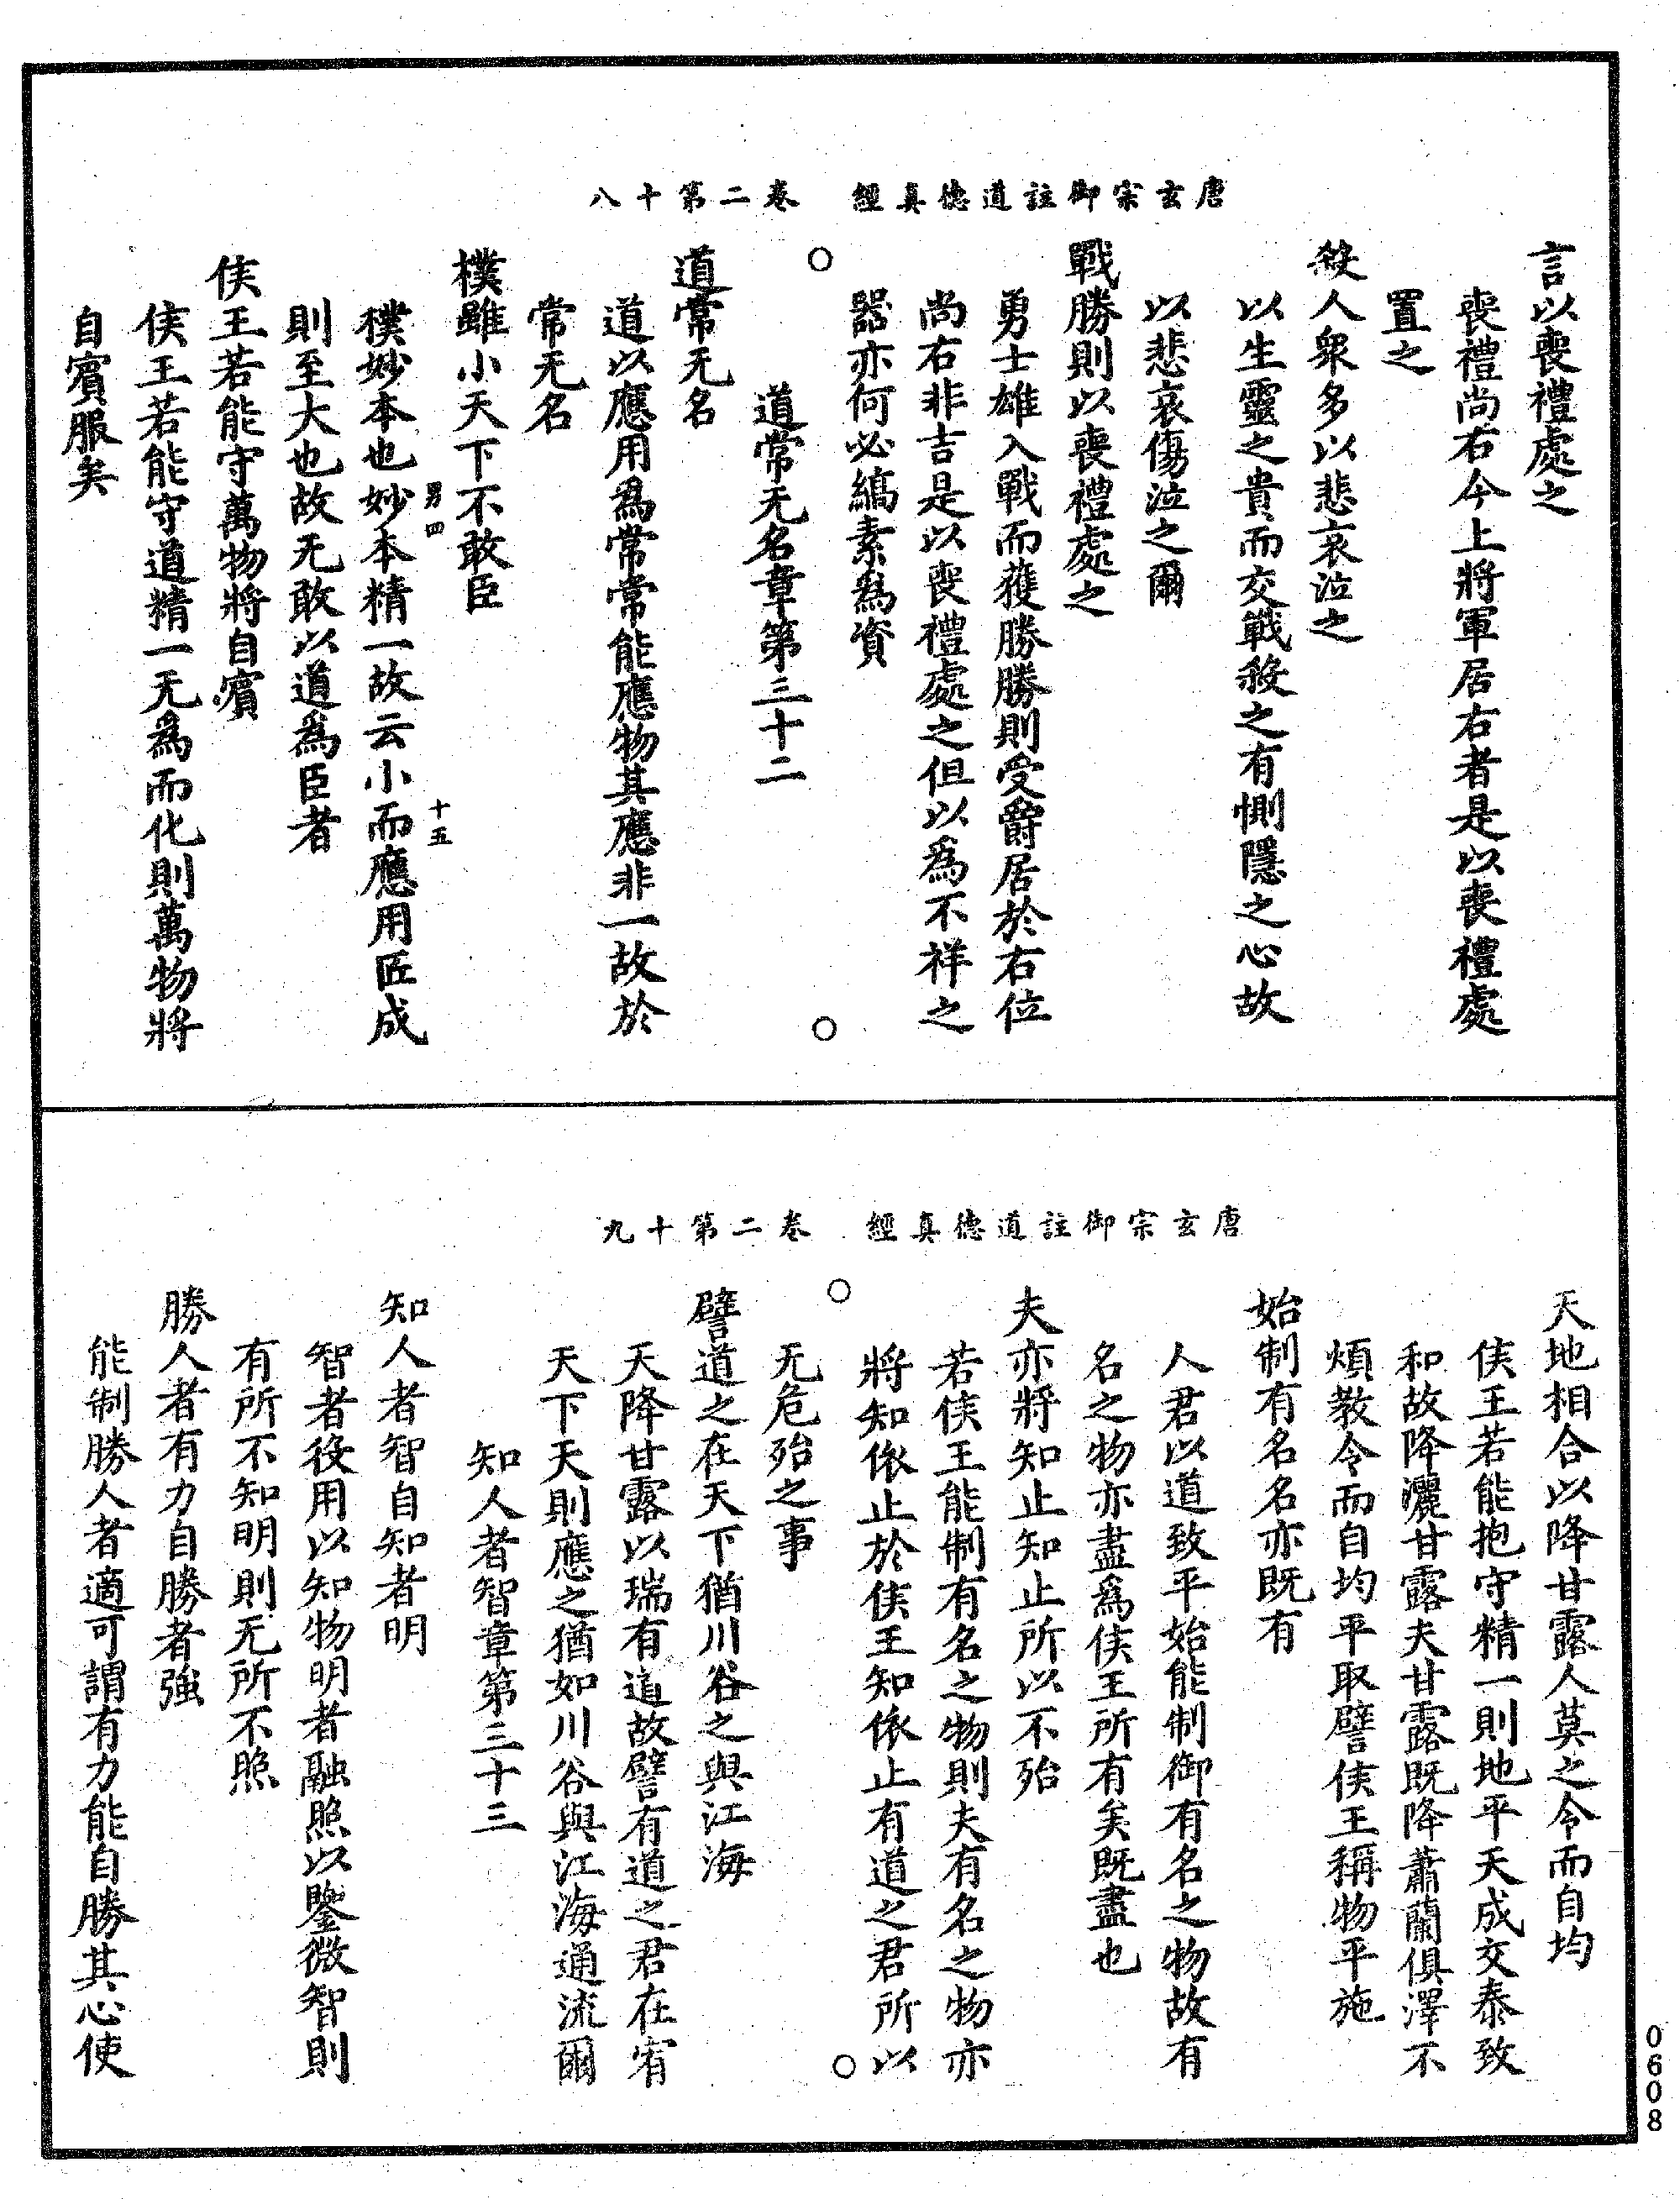 唐玄宗御註道德真經　卷二第十八
言以喪禮處之
喪禮尚右今上將軍居右者是以喪禮處
置之
殺人衆多以悲哀泣之
以生靈之貴而交戰殺之有惻隱之心故
以悲哀傷泣之爾
戰勝則以喪禮處之
勇士雄入戰而獲勝勝則受爵居於右位
尚右非吉是以喪禮處之但以爲不祥之
器亦何必縞素爲資
道常无名章第三十二
道常无名
道以應用爲常常能應物其應非一故於
常无名
樸雖小天下不敢臣
男四
十五
樸妙本也妙本精一故云小而應用匠成
則至大也故无敢以道爲臣者
侯王若能守萬物將自賓
侯王若能守道精一无爲而化則萬物將
自賓服矣
唐玄宗御註道德真經　卷二第十九
天地相合以降甘露人莫之令而自均
侯王若能抱守精一則地平天成交泰致
和故降灑甘露夫甘露既降蕭蘭俱澤不
煩教令而自均平取譬侯王稱物平施
始制有名名亦既有
人君以道致平始能制御有名之物故有
名之物亦盡爲侯王所有矣既盡也
夫亦將知止知止所以不殆
若侯王能制有名之物則夫有名之物亦
將知依止於侯王知依止有道之君所以
无危殆之事
譬道之在天下猶川谷之與江海
天降甘露以瑞有道故譬有道之君在宥
天下天則應之猶如川谷與江海通流爾
知人者智章第三十三
知人者智自知者明
智者役用以知物明者融照以鑒微智則
有所不知明則无所不照
勝人者有力自勝者強
能制勝人者適可謂有力能自勝其心使
0608